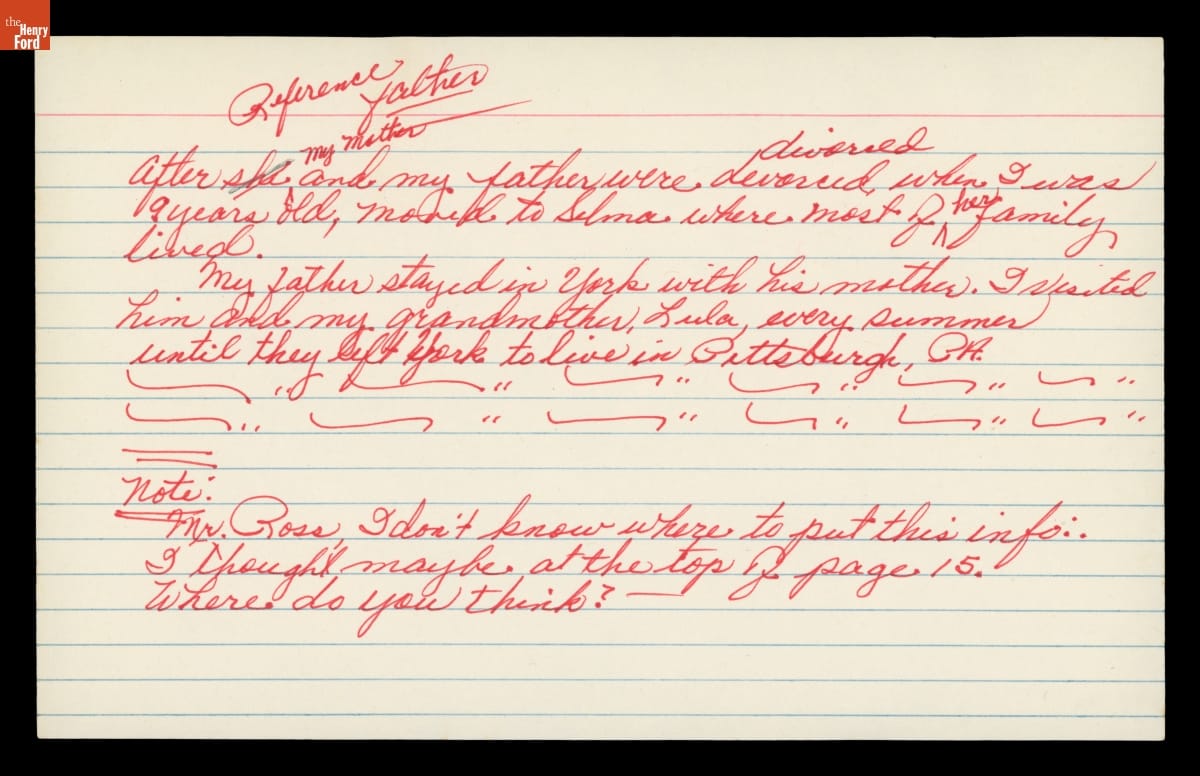 the
Henry
Ford
Reference
father
my mother
divorced
After she and my father were devorced, when I was
9 years old, moved to Selma where most of her family
lived.
My father stayed in York with his mother. I visited
him and my grandmother, Lula, every summer
until they left York to live in Pittsburgh, PA.
Note:
Mr. Ross, I don't know where to put this info:.
I thought maybe at the top of page 15.
Where do you think? —